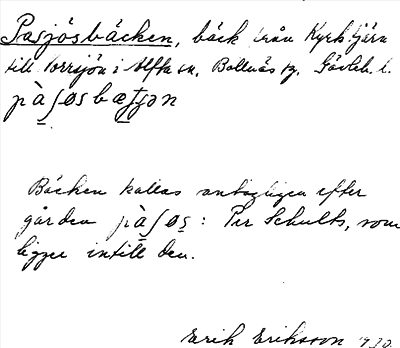 Pasjösbäcken, bäck från Kyrktjärn
till Norrsjön i Alfta sn, Bollnäs tg, Gävleb. l.
pàʃøsbæʈʂøn
Bäcken kallas antagligen efter
gården pàʃøs: Per Schults, som
ligger intill den.
Erik Eriksson 1930.